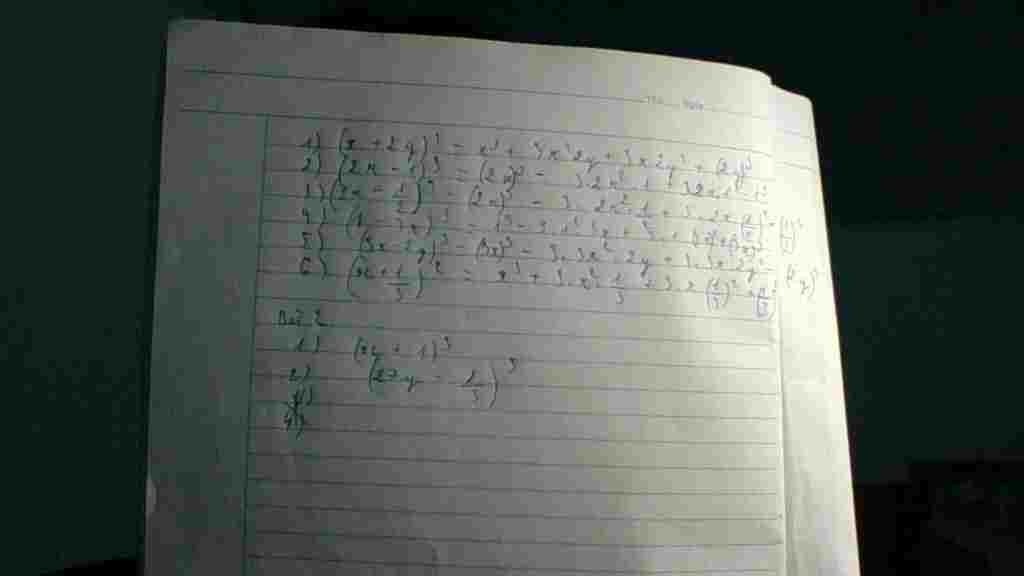 1) (x + 2y)³ = x³ + 3x²2y + 3x2y² + (2y)³
2) (2x - 1)3 = (2x)³ - 3.2x².1 + 3.2x.1² - 1³
3) (2x - 1/2)³ = (2x)³ - 3.2x².1/2 + 3.2x(1/2)² - (1/2)³
4) (1 - 3x)³ = 1³ - 3.1².3x + 3.1
5) (3x - 2y)³ = (3x)³ - 3.3x².2y + 3.3x.2y² - (2y)³
6) (x + 1/3)³ = x³ + 3.x².1/3 + 3.x(1/3)² + (1/3)³
Bài 2
1) (xy + 1)³
2) - 1/3)³